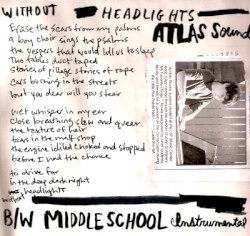 WITHOUT HEADLIGHTS
ATLAS Sound
Erase the scars from my palms
A boy choir sings the psalms
the vespers that would lull us to sleep
Two tables duct taped
Stories of pillage stories of rape
Cars burning in the streets
but you dear will you steer
wet whisper in my ear
Close breathing slow and queer
the texture of hair
tears in the mall shop
the engine idled choked and stopped
before I had the chance
to drive far
in the deep dark night
without headlights
B/W MIDDLE SCHOOL (Instrumental